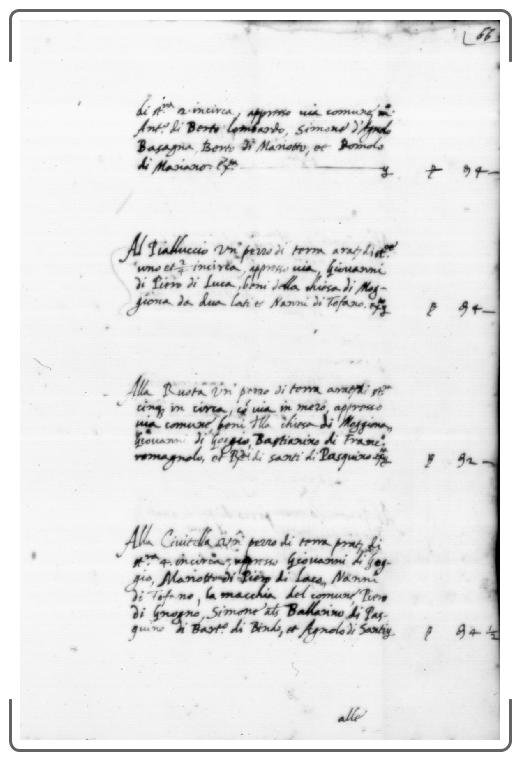 66
di st.ra 2 incirca, appresso via comune, m.o
Ant.o di Berto lombardo, Simone d'Agnolo
Basagna, Berto di Mariotto, et Romolo
di Mariano.
Al Pialluccio Un pezzo di terra arat.a di st.ro
uno et incirca, appresso via, Giovanni
di Piero di Luca, beni della chiesa di Mog-
giona da dua lati et Nanni di Tofano.
Alla Ruota Un pezzo di terra arat.a di st.ra
cinq. in circa, via in mezo, appresso
via comune, beni d.lla chiesa di Moggiona,
Giovanni di Goggio, Bastianino di Franc.o
romagnolo, et di santi di Pasquino
Alla Civitella Un pezzo di terra prat.a di
st.ra 4 incirca, appresso Giovanni di Gog-
gio, Mariotto di Piero di Laco, Nanni
di Tofano, la macchia del comune Piero
di Gnogno, Simone als Ballarino di Pas-
quino di Bart.o di Bindo, et Agnolo di Santi
alle